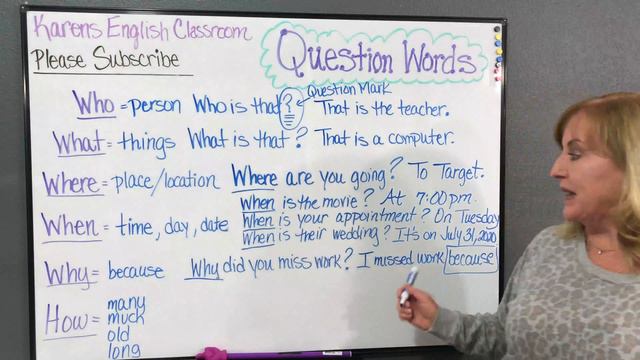 Karens English Classroom
Please Subscribe
Question Words
Question Mark
Who = person Who is that? That is the teacher.
What = things What is that? That is a computer.
Where = place/location Where are you going? To Target.
When is the movie? At 7:00pm.
When = time, day, date When is your appointment? On Tuesday
When is their wedding? It's on July 31, 2020
Why = because Why did you miss work? I missed work because
How = many
much
old
long